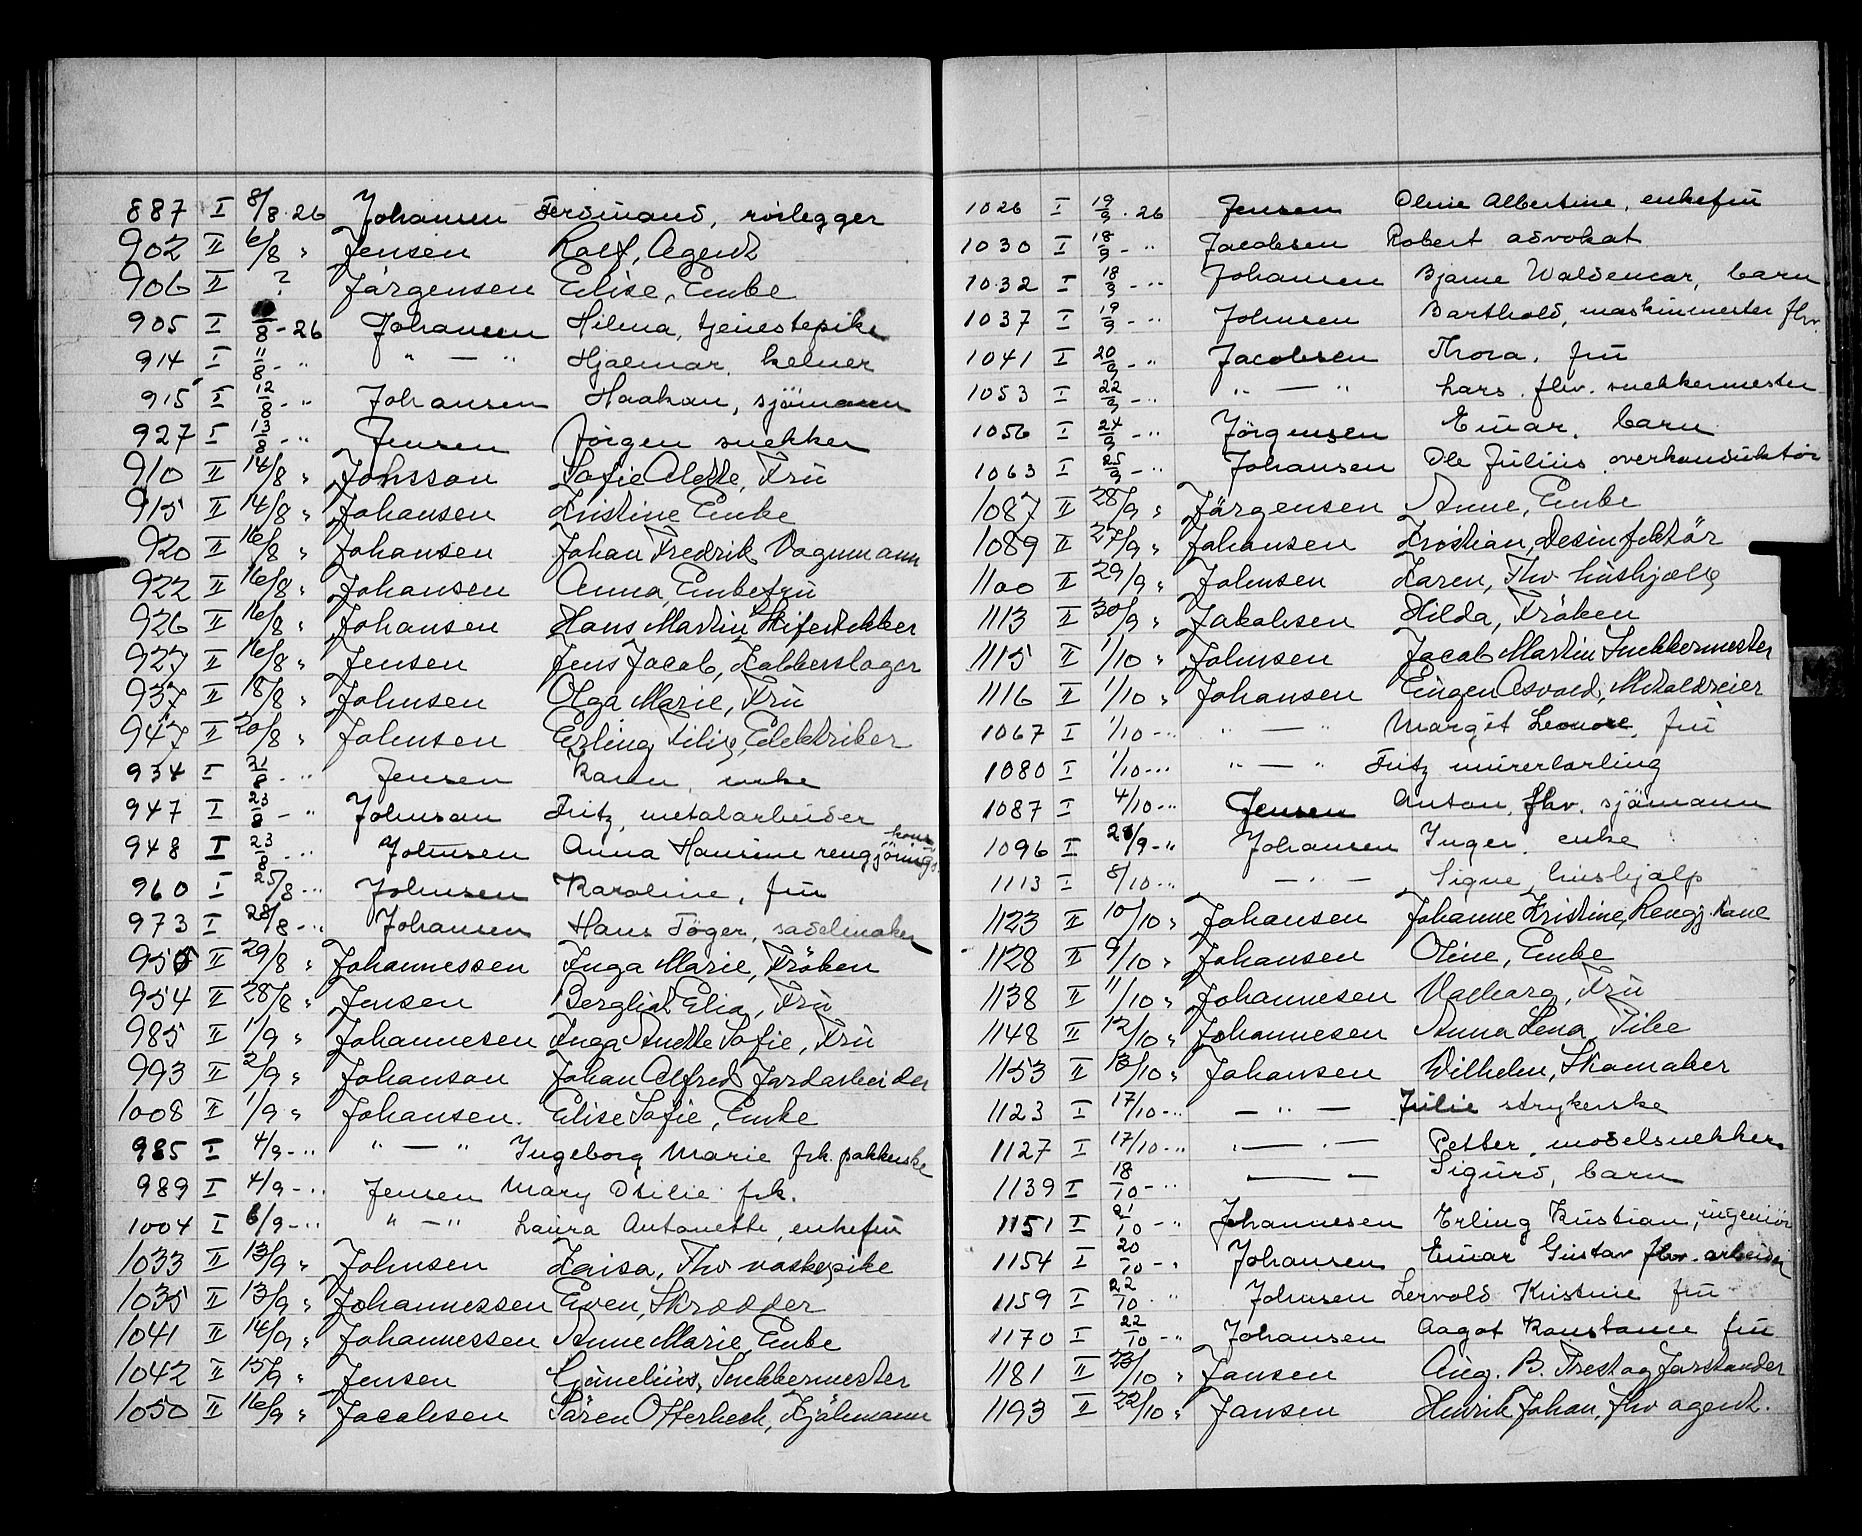 887 I 8/8.26 Johansen Ferdinand, rörlegger
902 II 6/8 " Jensen Rolf, Agent
906 II ? Jörgensen Elise, Enke
905 I /8 - 26 Johansen Hilma, tjenestepike
914 I 11/8 - " " — " Hjalmar, kelner
915 I 12/8 - " Johansen Haakon, sjömann
927 I 13/8 - " Jensen Jörgen snekker
910 II 14/8 " Johsson Sofie Alette, Fru
915 II 14/8 " Johansen Kristine Enke
920 II 16/8 " Johansen Johan Fredrik Vognmann
922 II 16/8 " Johansen Anna, Enkefru
926 II 16/8 " Johansen Hans Martin Skifertekker
927 II 16/8 " Jensen Jens Jacob, Kobberslager
937 II 18/8 " Johnsen Olga Marie, Fru
947 II 20/8 " Johnsen Erling Filip, Elektriker
934 I 21/8 - " Jensen Karen, enke
947 I 23/8 - " Johnsen Fritz, metalarbeider
948 I 23/8 - " Johnsen Anna Hansine rengjörings kone
960 I 25/8 - " Johnsen Karoline, fru
973 I 28/8 - " Johansen Hans Töger, sadelmaker
950 II 29/8 " Johannessen Inga Marie, Fröken
954 II 28/8 " Jensen Bergliot Elia, Fru
985 II 1/9 " Johannesen Inga Anette Sofie, Fru
993 II 2/9 " Johanson Johan Alfred Jordarbeider
1008 II 1/9 " Johansen. Elise Sofie, Enke
985 I 4/9 - " " — " Ingeborg Marie frk. pakkerske
989 I 4/9 - " Jensen Mary Otilie frk.
1004 I 6/9 - " " — " Laura Antonette, enkefru
1033 II 13/9 " Johnsen Laisa, Fhv vaskepike
1035 II 13/9 " Johannessen Even, Skrædder
1041 II 14/9 " Johannessen Anne Marie, Enke
1042 II 15/9 " Jensen Cornelius, Snekkermester
1050 II 16/9 " Jacobsen Sören Otterbech, Kjöbmann
1026 I 19/9.26 Jensen Oline Albertine, enkefru
1030 I 18/9 - " Jacobsen Robert advokat
1032 I 18/9 - " Johansen Bjarne Waldemar, barn
1037 I 19/9 - " Johnsen Barthold, maskinmester fhv.
1041 I 20/9 - " Jacobsen Thora, fru
1053 I 22/9 - " " — " Lars, fhv. snekkermester
1056 I 24/9 - " Jörgensen Einar, barn
1063 I 25/9 - " Johansen Ole Julius, overkonduktör
1087 II 28/9 " Jörgensen Anne, Enke
1089 II 27/9 " Johansen Kristian, Desinfektör
1100 II 29/9 " Johnsen Karen, Fhv hushjælp
1113 II 30/9 " Jakobsen Hilda, Fröken
1115 II 1/10 " Johnsen Jacob Martin Snekkermester
1116 II 1/10 " Johansen Eugen Osvald, Metaldreier
1067 I 1/10 - " " — " Margit Leonore, fru
1080 I 1/10 - " " — " Fritz murerlærling
1087 I 4/10 - " Jensen Anton, fhv. sjömann
1096 I 28/9 - " Johansen Inger, enke
1113 I 8/10 - " — " — Signe, hushjelp
1123 II 10/10 " Johansen Johanne Kristine, Rengj. kone
1128 II 9/10 " Johansen Oline, Enke
1138 II 11/10 " Johannesen Valborg, Fru
1148 II 12/10 " Johannesen Anna Lena, Pike
1153 II 13/10 " Johansen Vilhelm, Skomaker
1123 I 17/10 - " — " — Julie strykerske
1127 I 17/10 - " " — " — Petter, modelsnekker
1139 I 18/10 - " — — Sigurd, barn
1151 I 21/10 - " Johannesen Erling Kristian, ingeniör
1154 I 20/10 - " Johansen Einar Gustav fhv. arbeider
1159 I 22/10 " Johnsen Kristine fru
1170 I 22/10 - " Johansen Aagot Konstanse fru
1181 II 23/10 " Jansen Aug. B. Trest og Forstander
1193 II 22/10 " Jansen Henrik Johan, fhv agent.